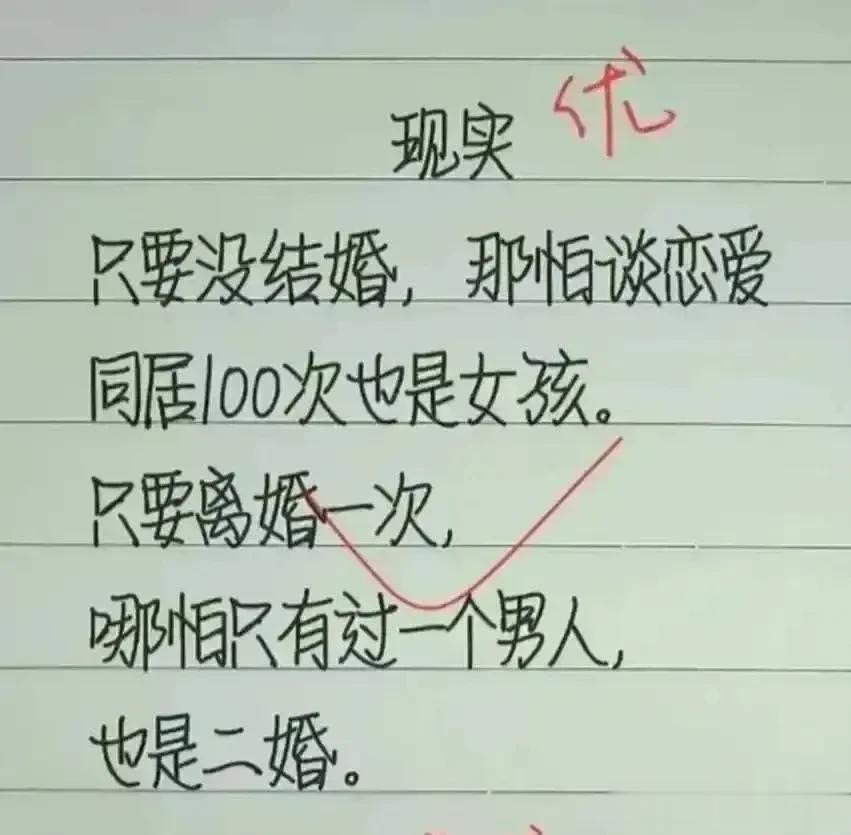 现实 优
只要没结婚，那怕谈恋爱
同居100次也是女孩。
只要离婚一次，
哪怕只有过一个男人，
也是二婚。